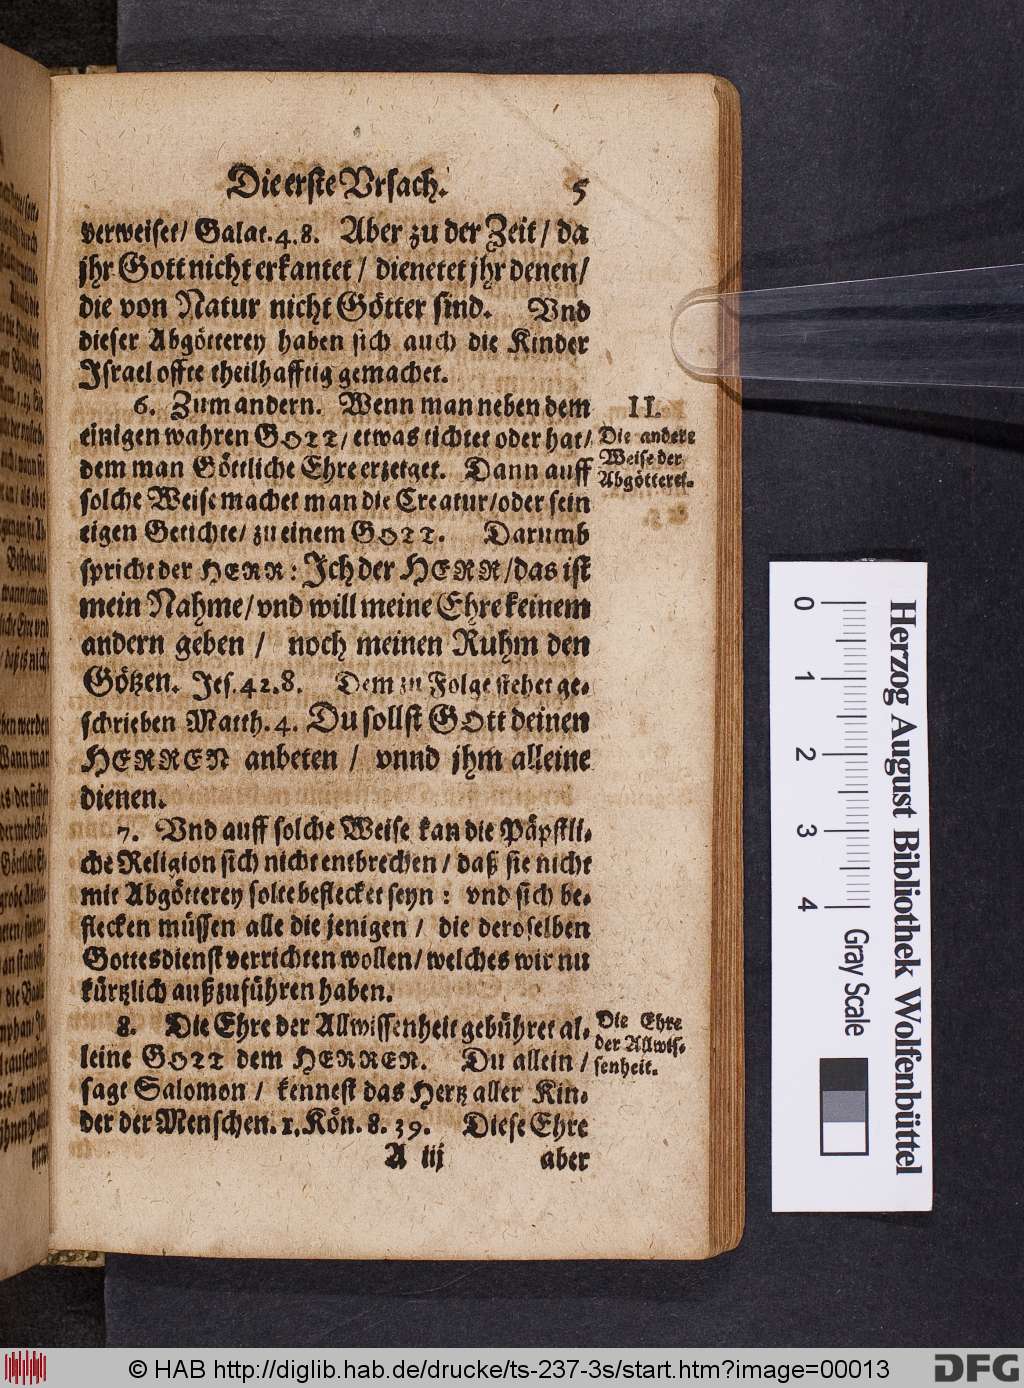 Die erste Vrsach. 5
verweiset / Galat. 4. 8. Aber zu der Zeit / da
jhr Gott nicht erkantet / dienetet jhr denen /
die von Natur nicht Götter sind. Vnd
dieser Abgötterey haben sich auch die Kinder
Israel offte theilhafftig gemachet.
6. Zum andern. Wenn man neben dem
einigen wahren GOTT / etwas tichtet oder hat /
dem man Göttliche Ehre erzeiget. Dann auff
solche Weise machet man die Creatur / oder sein
eigen Getichte / zu einem GOTT. Darumb
spricht der HERR: Ich der HERR / das ist
mein Nahme / vnd will meine Ehre keinem
andern geben / noch meinen Ruhm den
Götzen. Jes. 42. 8. Dem zu Folge stehet ge-
schrieben Matth. 4. Du sollst GOtt deinen
HERREN anbeten / vnnd jhm alleine
dienen.
II.
Die andere
Weise der
Abgötterei.
7. Vnd auff solche Weise kan die Päpstli-
che Religion sich nicht entbrechen / daß sie nicht
mit Abgötterey solte beflecket seyn: vnd sich be-
flecken müssen alle die jenigen / die deroselben
Gottesdienst verrichten wollen / welches wir nu
kürtzlich außzuführen haben.
8. Die Ehre der Allwissenheit gebühret al-
leine GOTT dem HERREN. Du allein /
sagt Salomon / kennest das Hertz aller Kin-
der der Menschen. 1. Kön. 8. 39. Diese Ehre
Die Ehre
der Allwis-
senheit.
A iij aber
0 1 2 3 4
Herzog August Bibliothek Wolfenbüttel
Gray Scale
© HAB http://diglib.hab.de/drucke/ts-237-3s/start.htm?image=00013
DFG